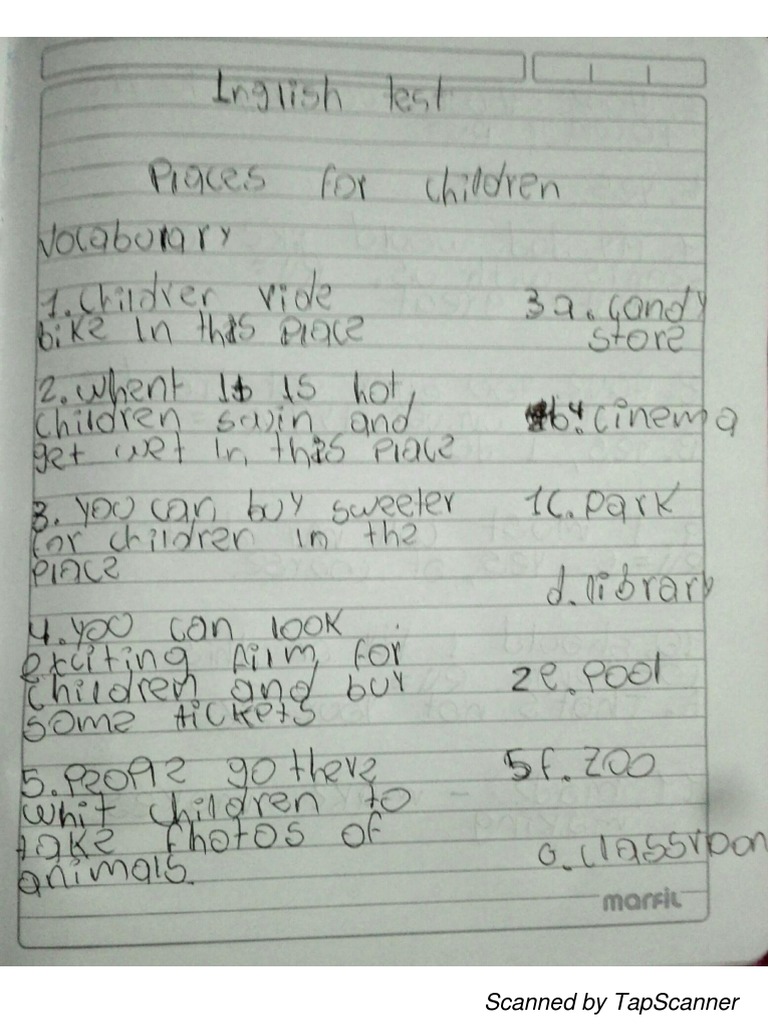 Inglish test
Places for children
Vocabulary
1. Children ride
bike in this place
3 a. candy
store
2. whent it is hot,
children swin and
get wet in this place
4 b. cinema
3. you can buy sweeter
for children in the
place
1 c. park
d. library
4. you can look
exciting film for
children and buy
some tickets
2 e. pool
5. people go there
whit children to
take photos of
animals.
5 f. zoo
g. classroon
marfil
Scanned by TapScanner